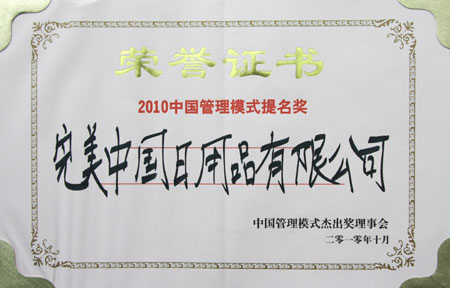 荣誉证书
2010中国管理模式提名奖
完美中国日用品有限公司
中国管理模式杰出奖理事会
二零一零年十月